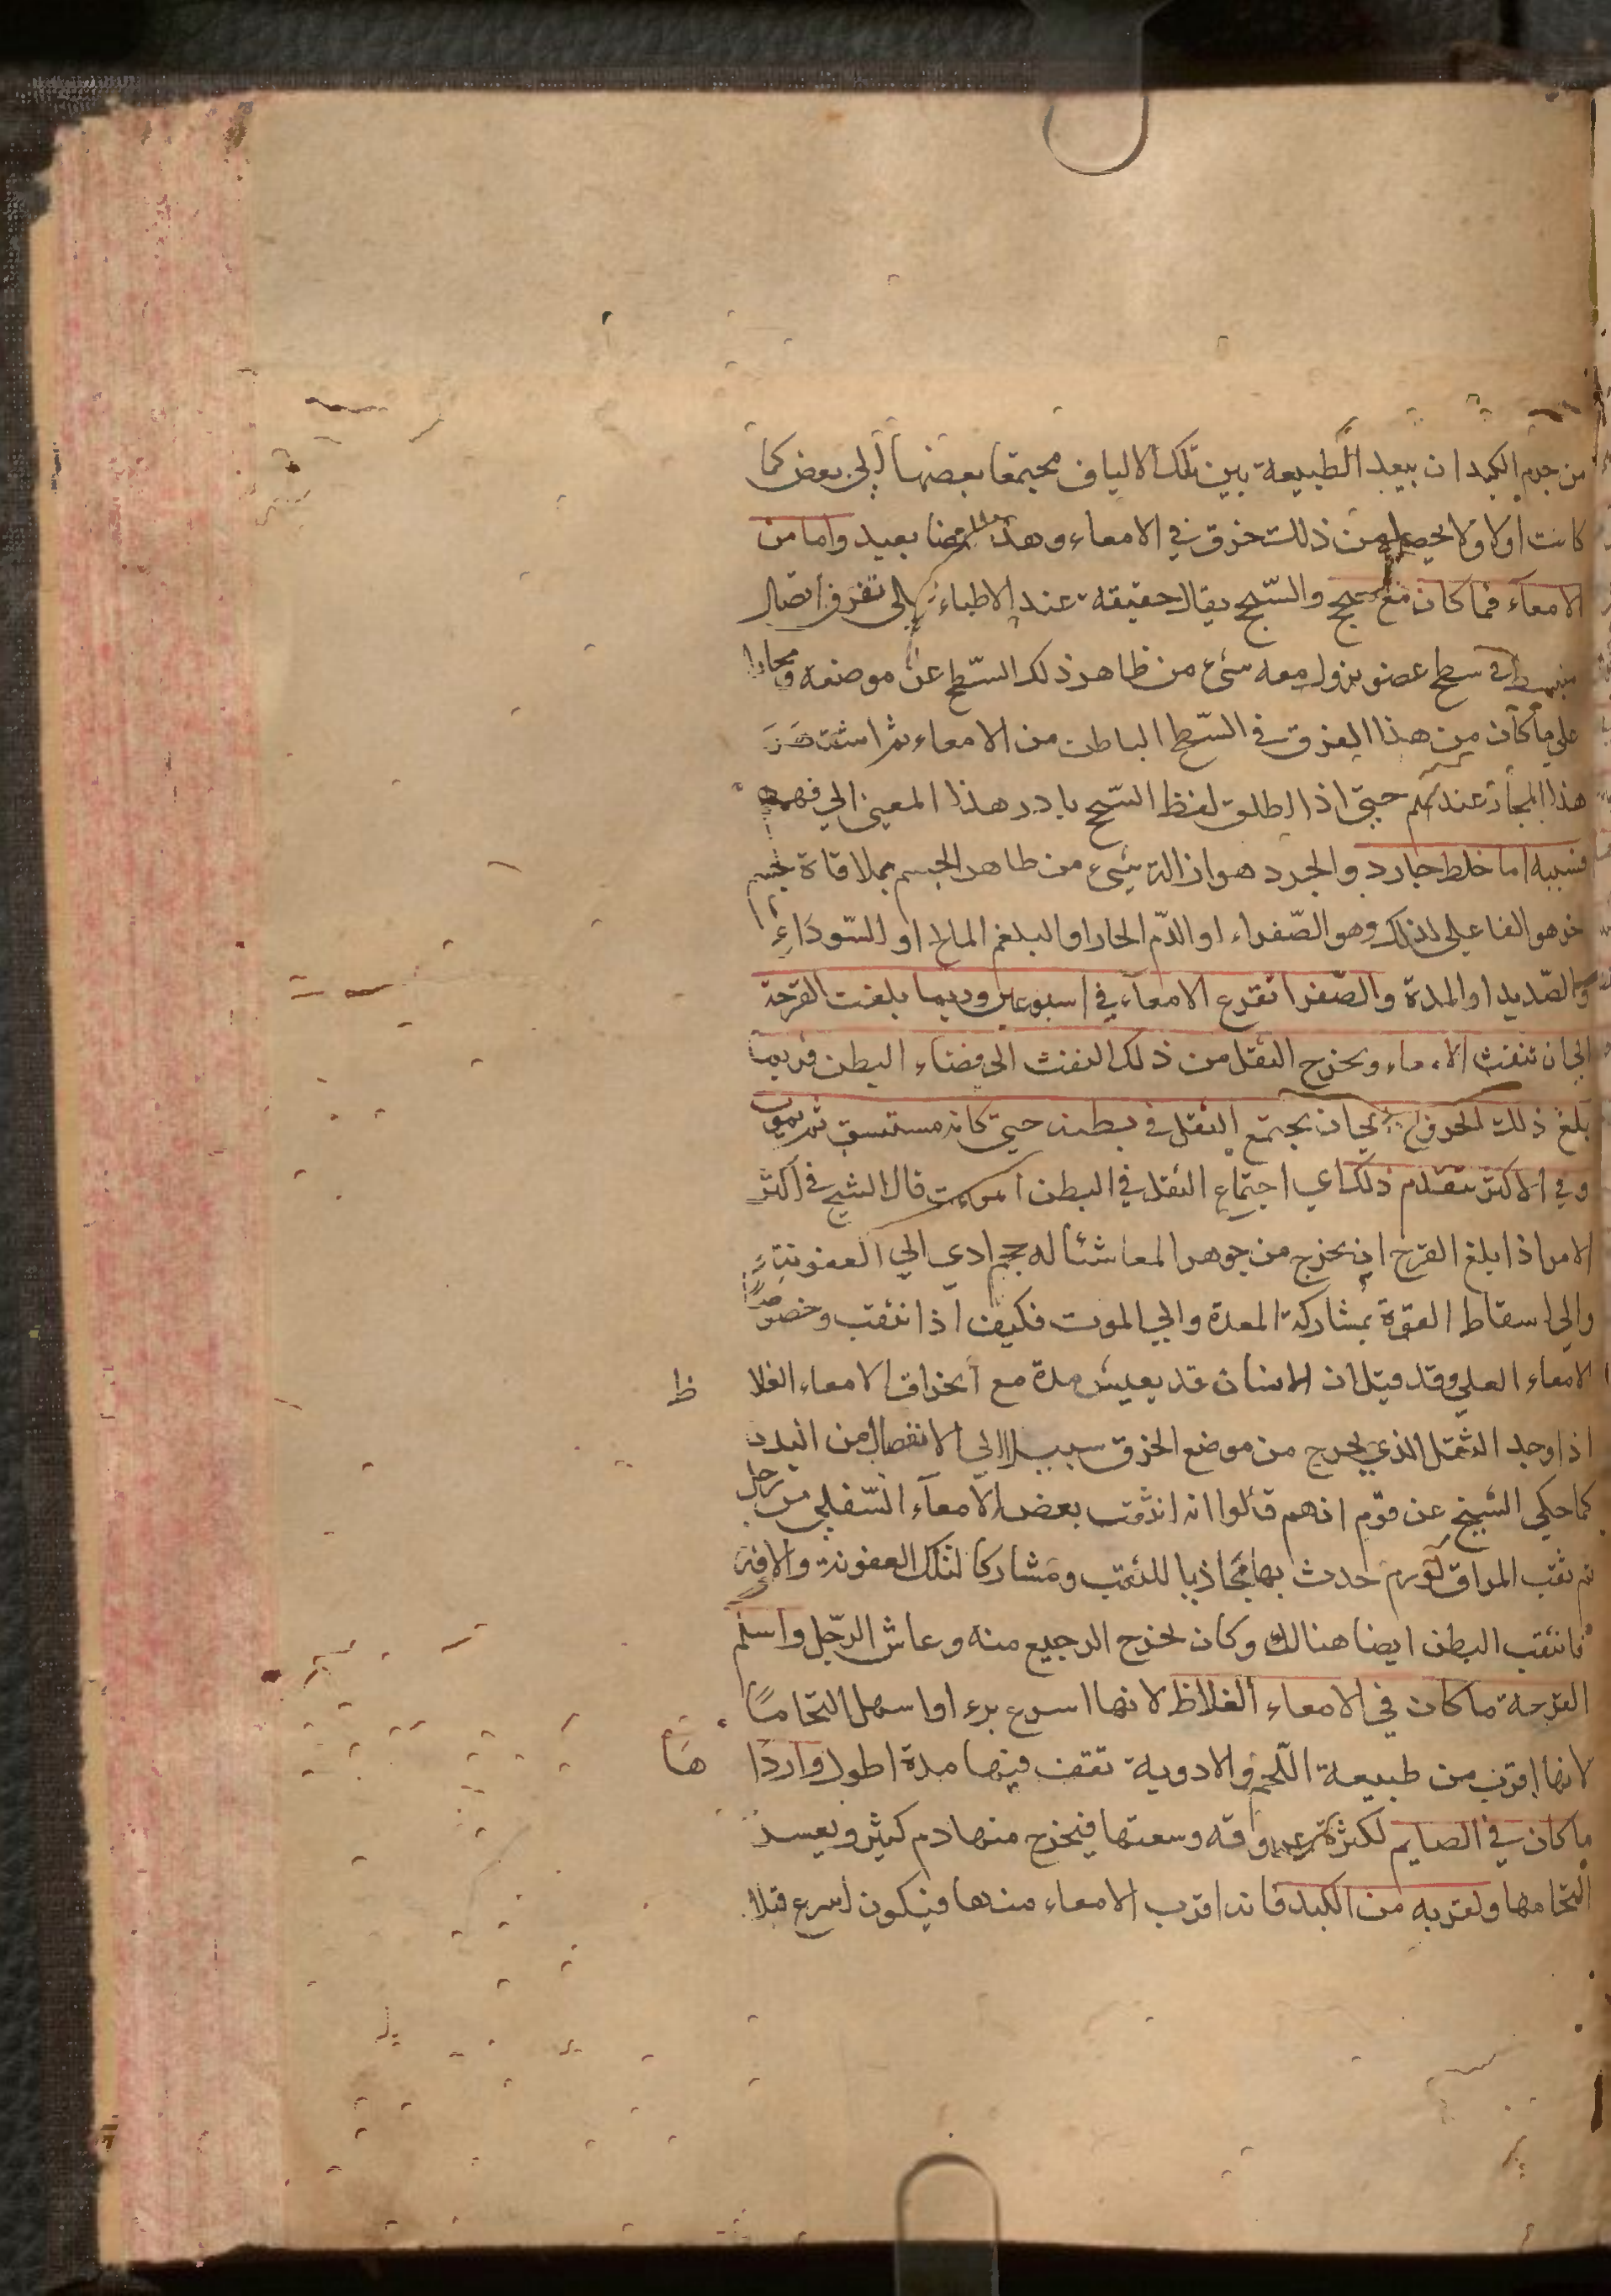 من جرم الكبد ان يبعد الطبيعة بين تلك الالياف مجتمعا بعضها إلى بعض كما
كانت اولا ولا يحصل من ذلك خرق في الامعاء وهذا ايضا بعيد واما من
الامعاء فما كان مع سحج والسّحج يقال حقيقه عند الاطباء إلى تفرق اتصال
منبسط في سطح عضو يزول معه شيء من ظاهر ذلك السّطح عن موضعه ومجازا
على ما كان من هذا التفرق في السّطح الباطن من الامعاء ثم اشتهر
هذا المجاز عندهم حتى اذا اطلق لفظ السّحج بادر هذا المعنى الي فهمه
فسببه اما خلط جارد والجرد هو ازالة شيء من ظاهر الجسم بملاقاة جسم
اخر هو الفاعل لذلك وهو الصّفراء او الدّم الحار او البلغم المالح او السّوداءِ
والصّديد او المدة والصّفرا تقرح الامعاء في اسبوعين وربما بلغت القرحة
الى ان تنقب الامعاء ويخرج الثقل من ذلك النقب الى فضاء البطن فربما
بلغ ذلك الخروج الى ان يجتمع الثقل في بطنه حتى كانه مستسق ثم يموت
وفي الاكثر يتقدم ذلك اي اجتماع الثقل في البطن الموت قال الشيخ في اكثر
الامر اذا بلغ القرح ان يخرج من جوهر المعا شئا له حجم ادي الي العفونة
والى اسقاط القوة بمشاركة المعدة والى الموت فكيف اذا انثقب وخصوصًا
الامعاء العلي وقد قيل ان الانسان قد يعيش مدة مع انخراق الامعاء الغلا ظ
اذا وجد الثقل الذي يخرج من موضع الخرق سبيلا الي الانفصال من البدن
كما حكي الشيخ عن قوم انهم قالوا انه انثقب بعض الامعاء السّفلي من رجل
ثم ثقب المراق لورم حدث بها محاذيا للثقب ومشاركا لتلك العفونة والافة
فانثقب البطن ايضا هنالك وكان يخرج الرجيع منه وعاش الرّجل واسلم
القرحة ما كان في الامعاء الغلاظ لانها اسرع برء او اسهل التحامًا
لانها اقرب من طبيعة اللّحم والادوية تقف فيها مدة اطول واردَا هَا
ما كان في الصايم لكثرة عروقه وسعتها فيخرج منها دم كثير ويعسر
التحامها ولقربه من الكبد فانه اقرب الامعاء منها فيكون اسرع قبلا